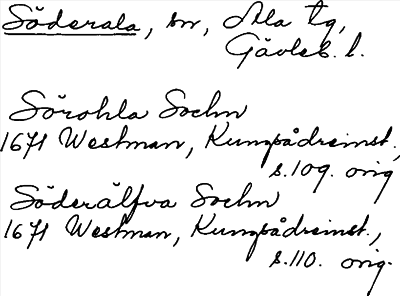 Söderala, sn, Ala tg,
Gävleb. l.
Sörohla Sochn
1671 Westman, Kungsådreinst.,
s.109. orig
Söderälfva Sochn
1671 Westman, Kungsådreinst.,
s.110. orig.